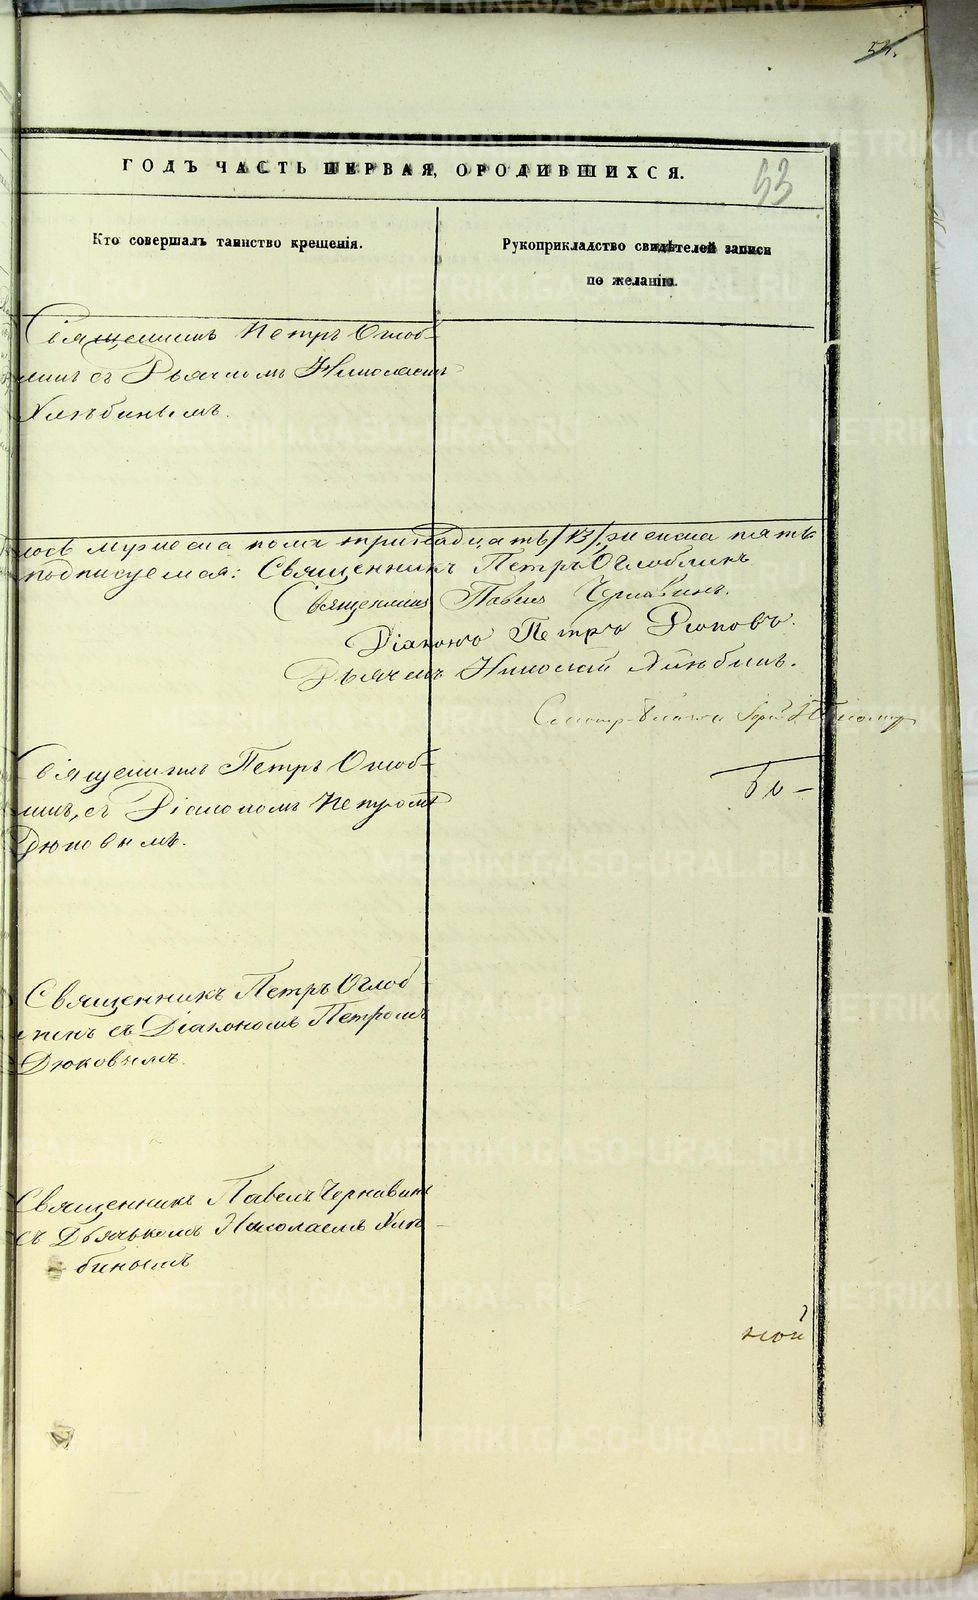 54.
ГОДЪ ЧАСТЬ ПЕРВАЯ, О РОДИВШИХСЯ.
53
Кто совершалъ таинство крещенія.
Рукоприкладство свидѣтелей записи
по желанію.
Священникъ Петръ Оглоб-
линъ съ Дьячкомъ Николаемъ
Хлѣбинымъ.
лось мужеска пола тринадцать /13/, женска пять
подписуемся: Священникъ Петръ Оглоблинъ
Священникъ Павелъ Чернавинъ.
Діаконъ Петръ Дюковъ.
Дьячекъ Николай Хлѣбинъ.
Священникъ Петръ Оглоб-
линъ, съ Діакономъ Петромъ
Дюковымъ.
Священникъ Петръ Оглоб
линъ съ Діакономъ Петромъ
Дюковымъ.
Священникъ Павелъ Чернавинъ
съ Дьячькомъ Николаемъ Хлѣ-
бинымъ
ной
METRIKI.GASO-URAL.RU